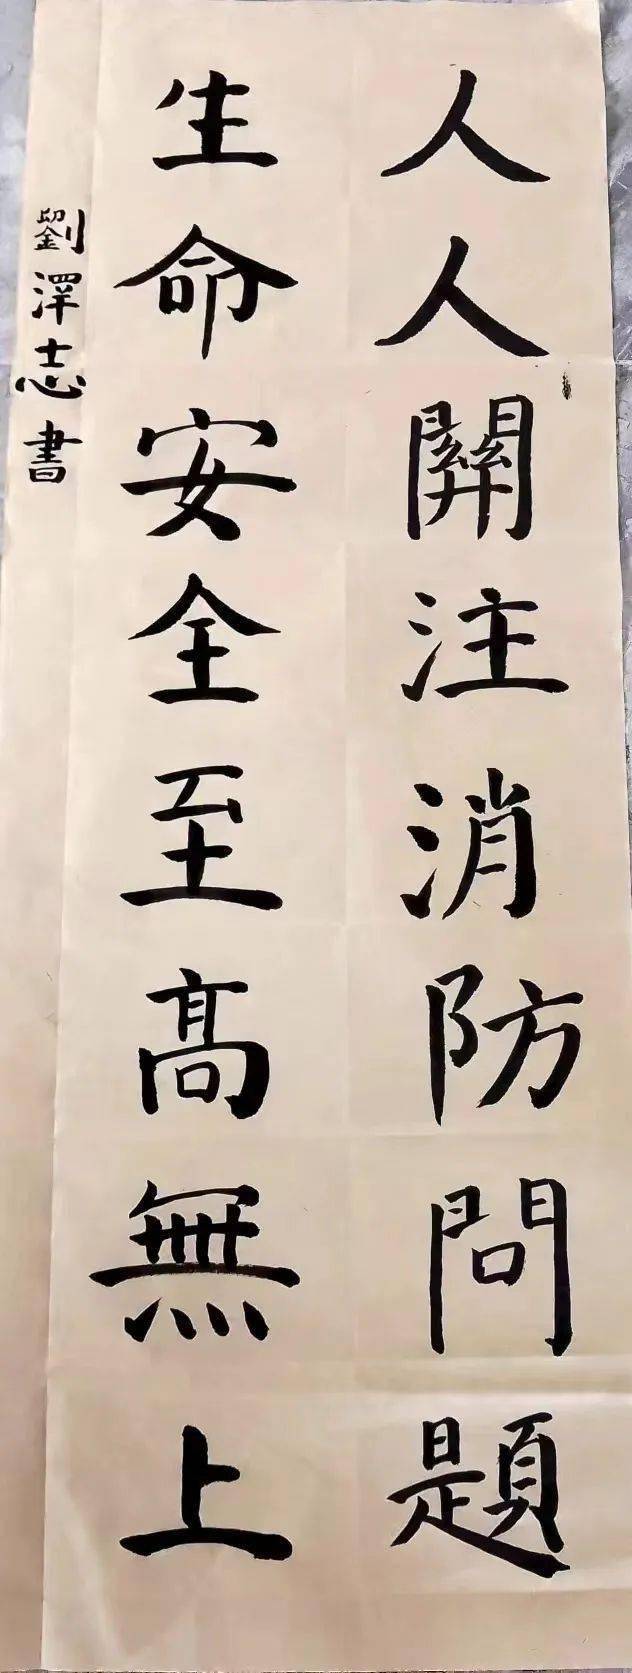 人人關注消防問題
生命安全至高無上
劉澤志書